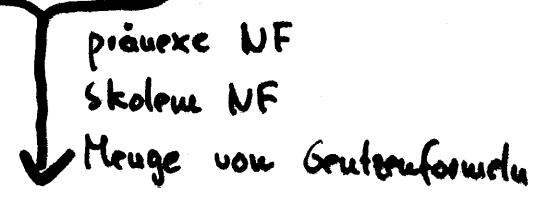 pränexe NF
Skolem NF
Menge von Gentzenformeln